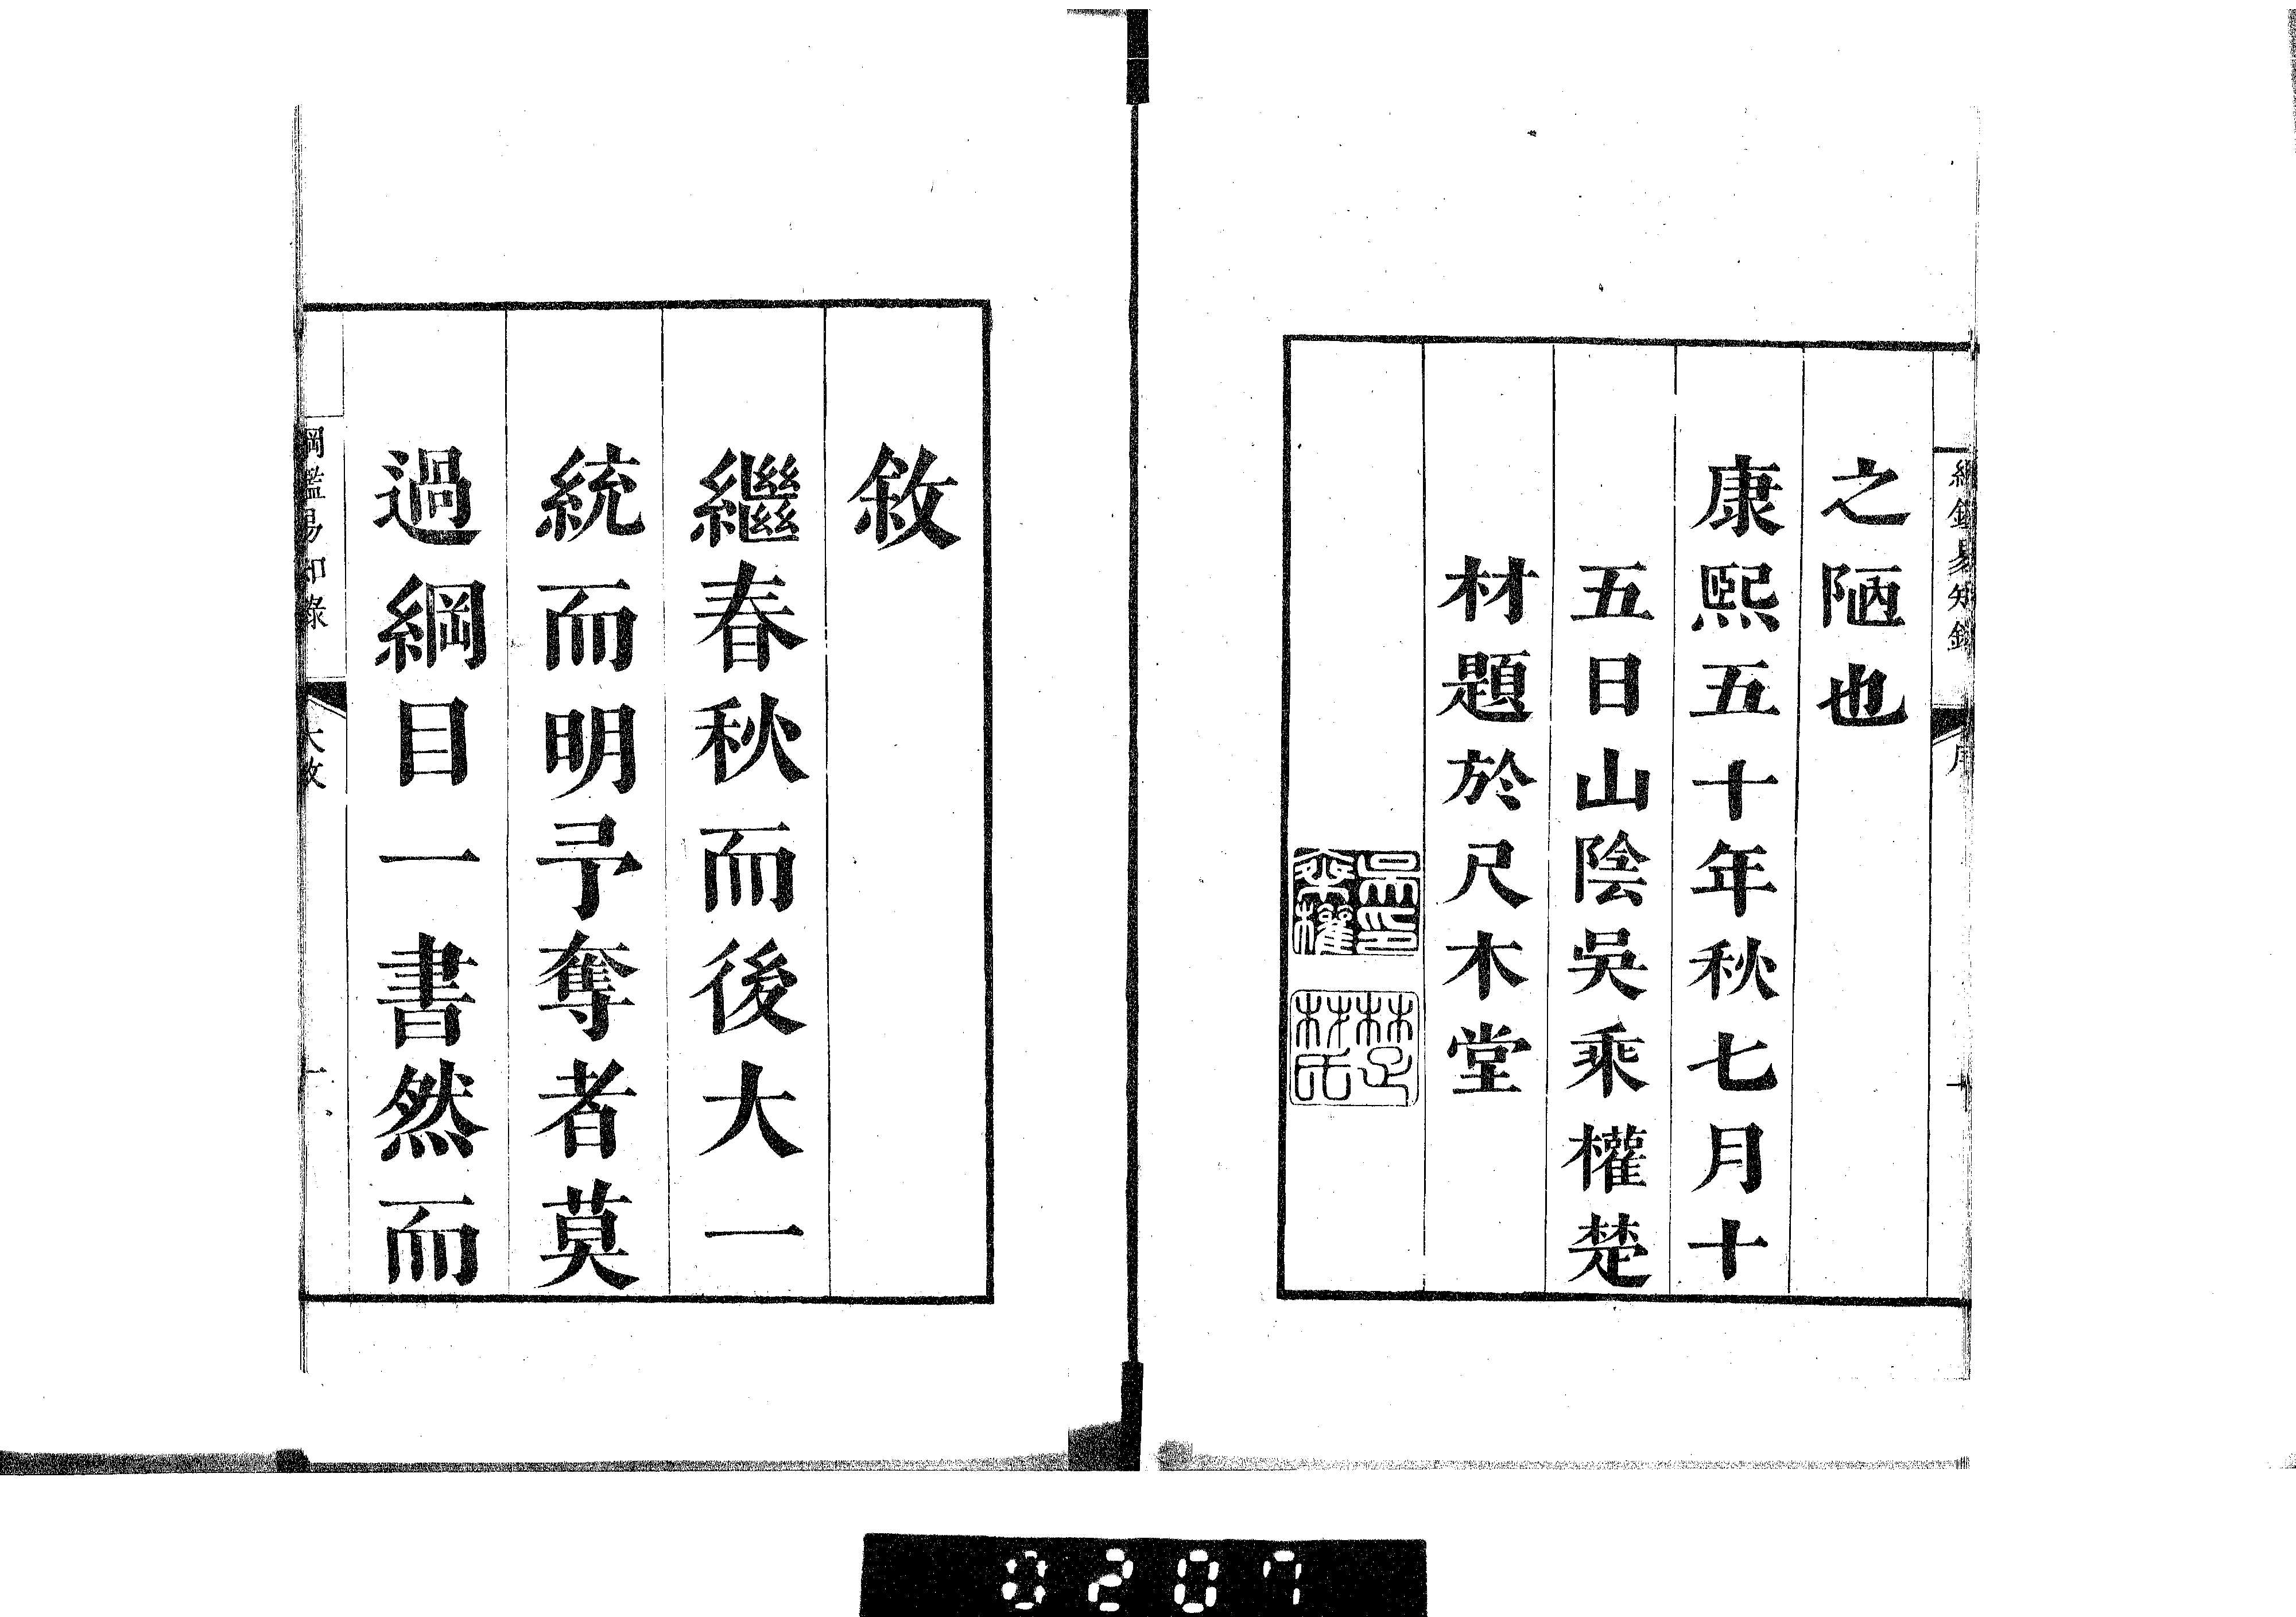 綱鑑易知錄
序
十
之陋也
康熙五十年秋七月十
五日山陰吳乘權楚
材題於尺木堂
吳印乘權
楚材氏
敘
繼春秋而後大一
統而明予奪者莫
過綱目一書然而
綱鑑易知錄
大敘
一
0207